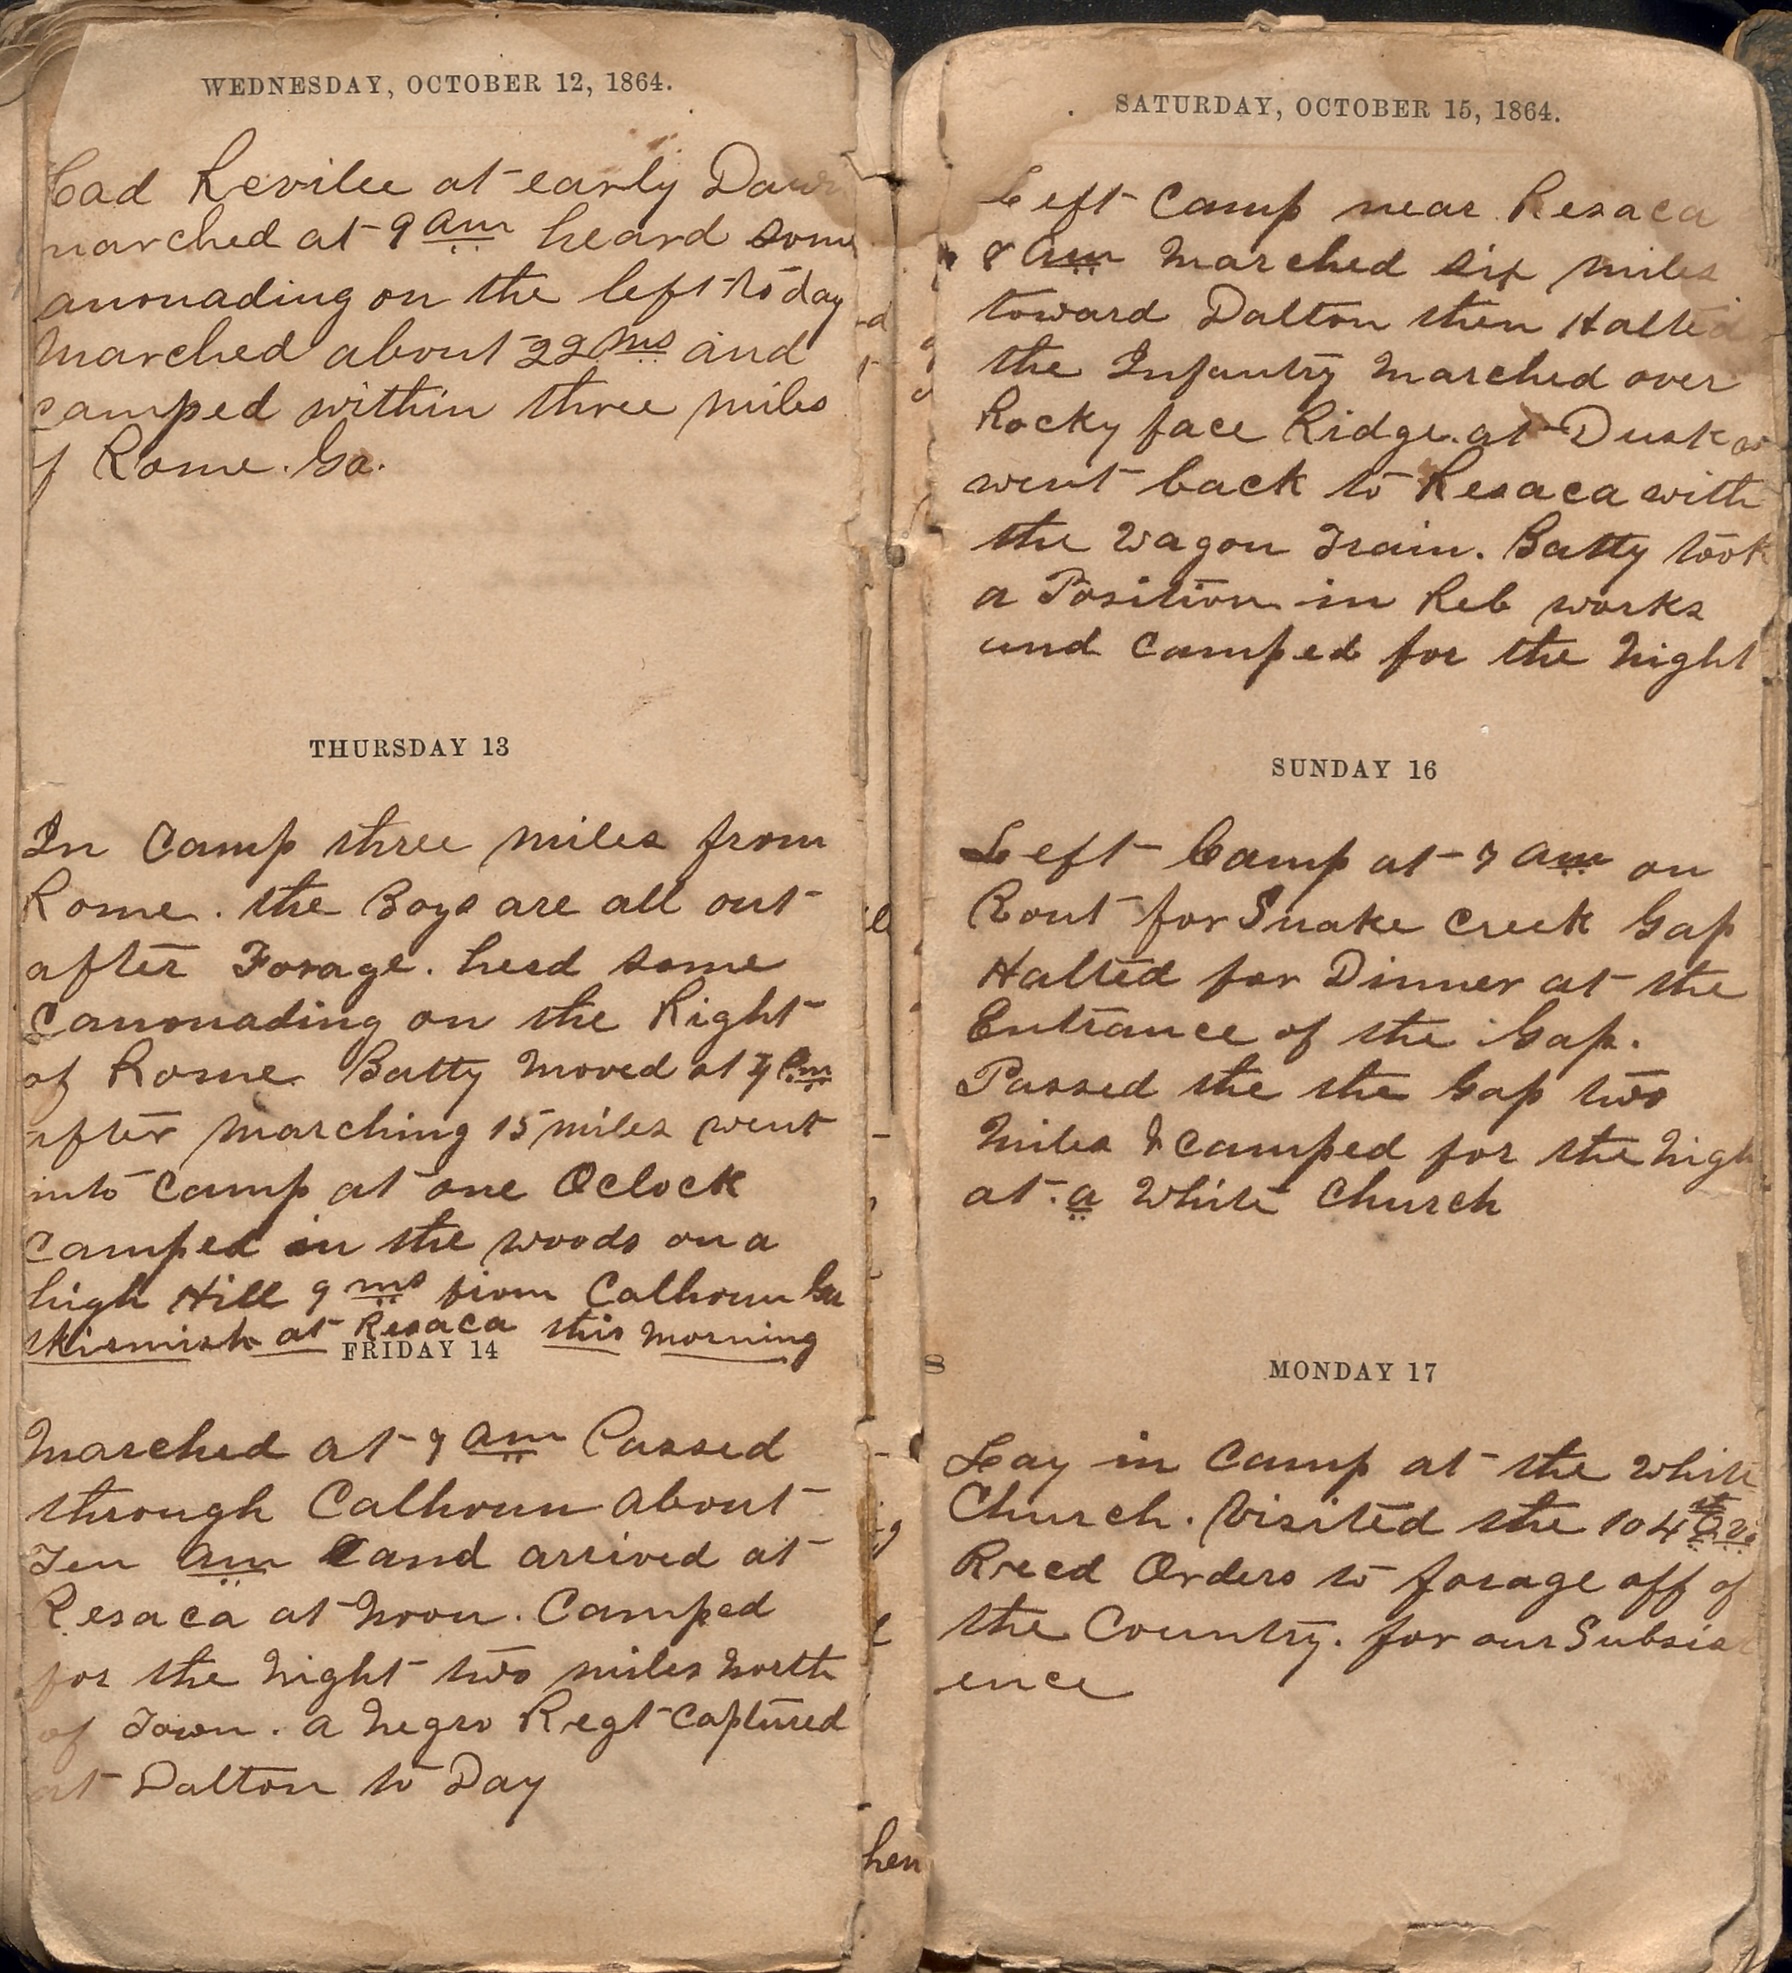 WEDNESDAY, OCTOBER 12, 1864.
Had Revilee at early Dawn
marched at 9 am heard some
anonading on the left to day
Marched about 22 ms and
camped within three miles
f Rome. Ga.
THURSDAY 13
In Camp three miles from
Rome. the Boys are all out
after Forage. herd some
Canonading on the Right
of Rome. Batty moved at 4 Pm
after marching 15 miles went
into Camp at one Oclock
Camped in the woods on a
high Hill 9 ms from Calhoun Ga
skirmish at Resaca this morning
FRIDAY 14
Marched at 7 am Passed
through Calhoun about
Ten am and arrived at
Resaca at Noon. Camped
for the Night two miles North
of Town. a Negro Regt Captured
at Dalton to Day
hen
SATURDAY, OCTOBER 15, 1864.
Left Camp near Resaca
8 am Marched six miles
toward Dalton then Halted
the Infantry Marched over
Rocky face Ridge. at Dusk
went back to Resaca with
the Wagon Train. Batty took
a Position in Reb works
and Camped for the Night
SUNDAY 16
Left Camp at 7 am on
Rout for Snake Creek Gap
Halted for Dinner at the
Entrance of the Gap.
Passed the the Gap two
Miles & Camped for the Nigh
at a White Church
MONDAY 17
Lay in Camp at the White
Church. Visited the 104th
Recd Orders to forage off of
the Country. for our Subsist
ence